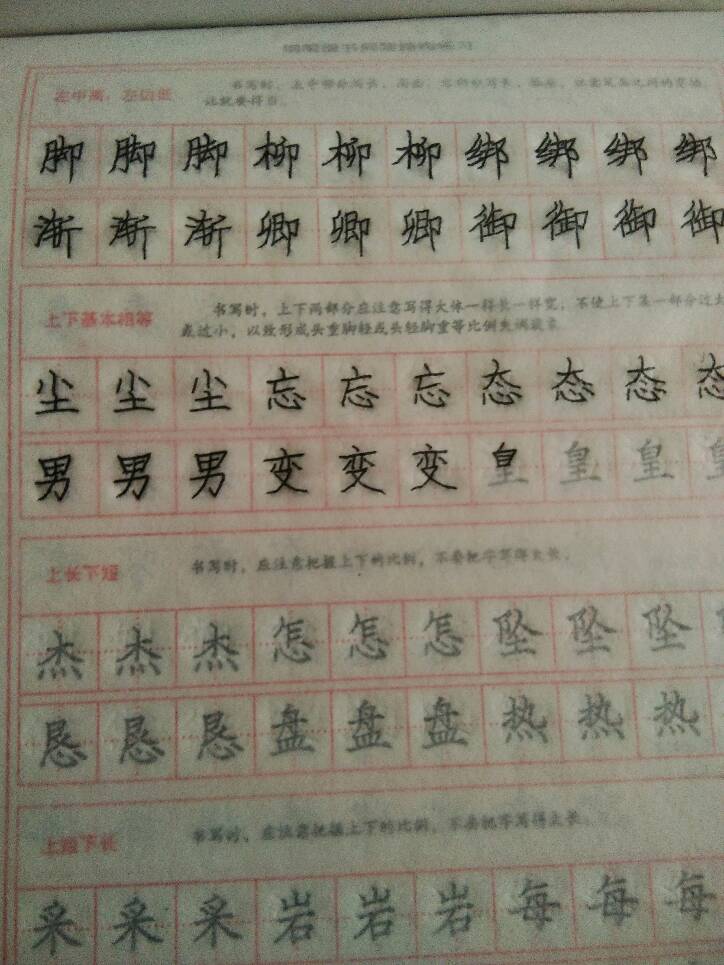 书写时，左中
让就要得当。
脚脚脚柳柳柳绑绑绑绑
渐渐渐卿卿卿御御御御
上下基本相等
书写时，上下两部分应注意写得大体一样长一样宽，不使上下某一部分过大
或过小，以致形成头重脚轻或头轻脚重等比例失调现象
尘尘尘忘忘忘态态态态
男男男变变变皇皇皇皇
上长下短
书写时，应注意把握上下的比例，不要把字写得太长。
杰杰杰怎怎怎坠坠坠
恳恳恳盘盘盘热热热
上短下长
书写时，应注意把握上下的比例，不要把字写得太长。
采采采岩岩岩每每每